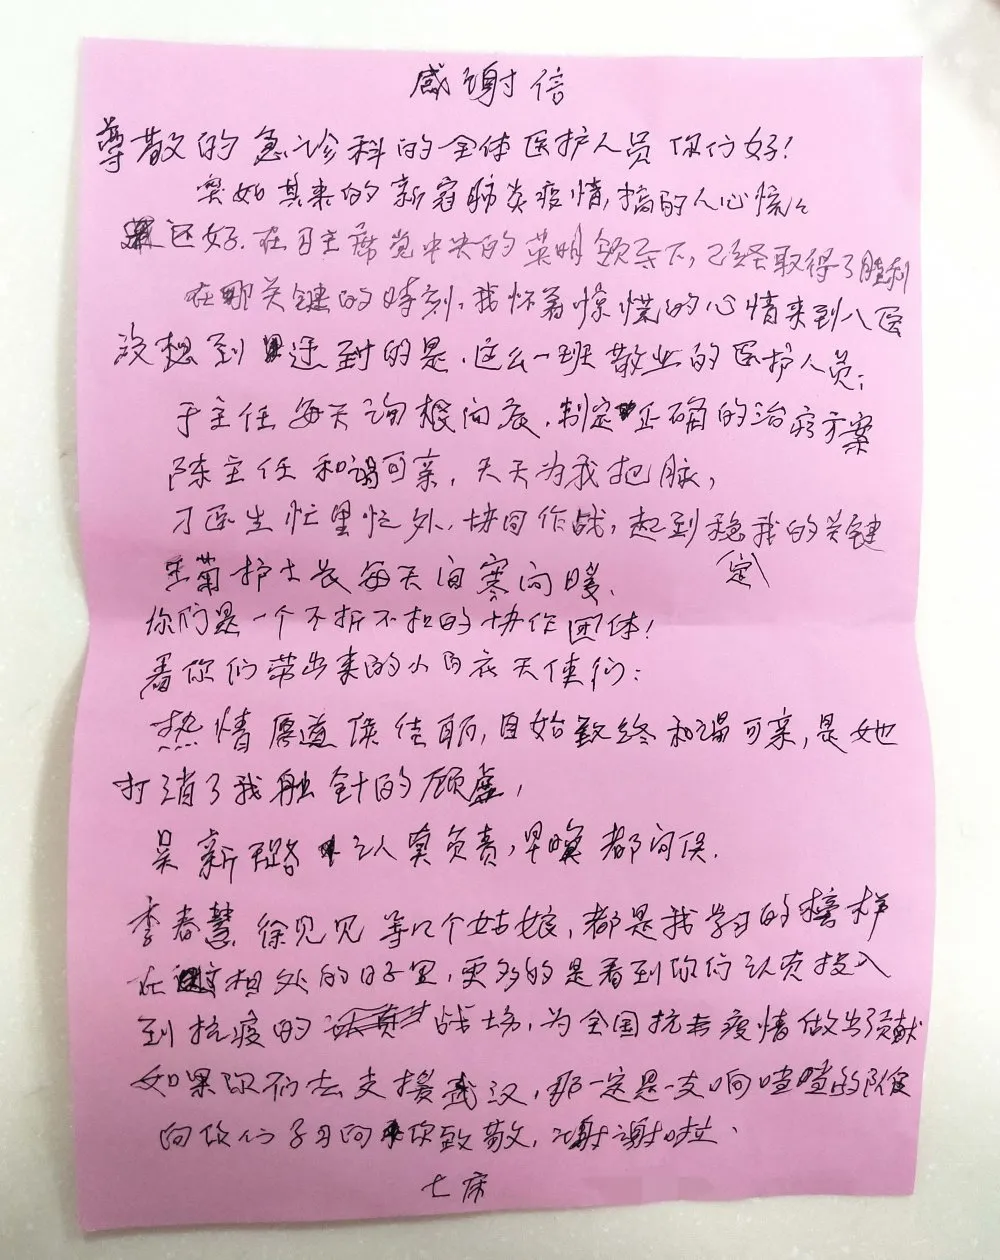 感谢信
尊敬的急诊科的全体医护人员你们好!
突如其来的新冠肺炎疫情,搞的人心慌々
还好.在习主席党中央的英明领导下,已经取得了胜利
在那关键的时刻,我怀着惊慌的心情来到八医
没想到遇到的是.这么一班敬业的医护人员:
于主任每天询根问底,制定正确的治疗方案
陈主任和谒可亲,天天为我把脉,
刁医生忙里忙外,协同作战,起到稳定我的关键
王菊护士长每天问寒问暖.
你们是一个不折不扣的协作团体!
看你们带出来的小白衣天使们:
热情厚道侯佳丽,自始致终和谒可亲,是她
打消了我触针的顾虑,
吴新璐认真负责,早晚都问侯.
李春慧.徐见见等几个姑娘,都是我学习的榜样
在相处的日子里,更多的是看到你们认真投入
到抗疫的战场,为全国抗击疫情做出了贡献
如果你们去支援武汉,那一定是一支响喳喳的队伍
向你们学习向你致敬,谢谢啦.
七床